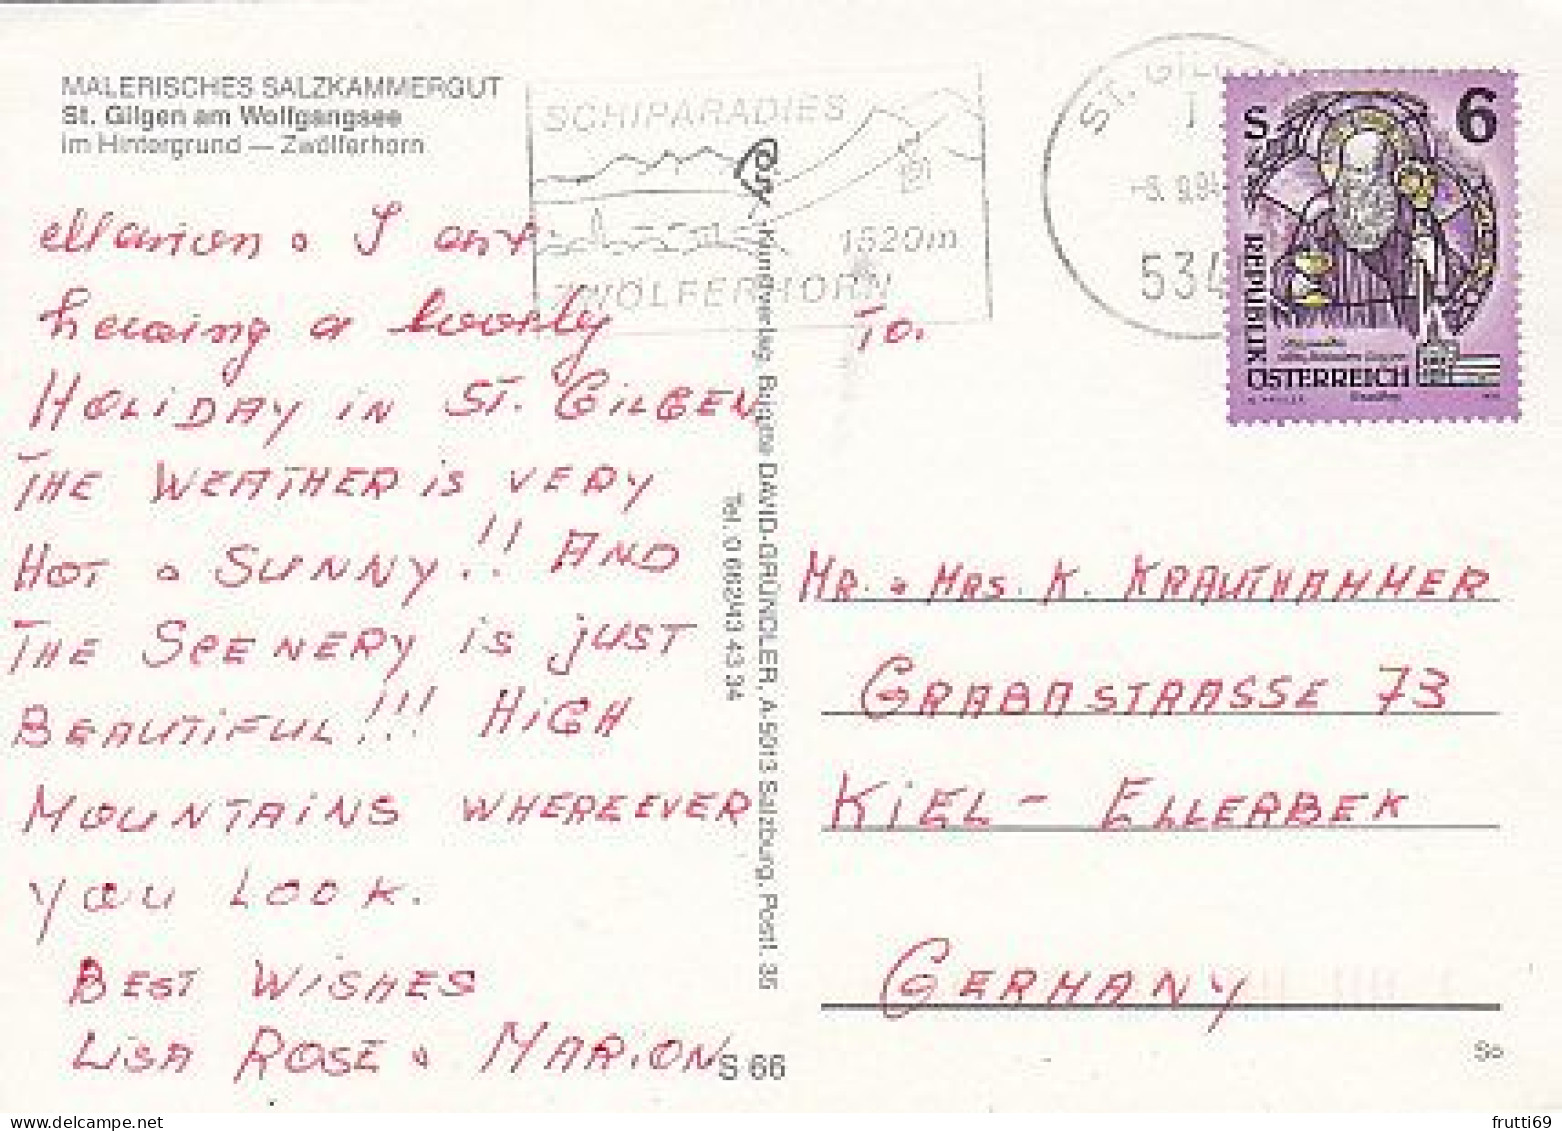 MALERISCHES SALZKAMMERGUT
St. Gilgen am Wolfgangsee
im Hintergrund — Zwölferhorn
SCHIPARADIES
1520m
ZWÖLFERHORN
ST. GILG
534
S 6
REPUBLIK
ÖSTERREICH
Marion & I are
having a lovely
HOLIDAY IN ST. GILGEN
THE WEATHER iS VERY
HOT & SUNNY!! AND
THE SCENERY iS JUST
BEAUTiFUL!!! HiGH
MOUNTAiNS WHEREEVER
YOU LOOK.
BEST WiSHES
LiSA ROSE & MARiON
Kunstverlag Brigitte DAVID-GRÜNDLER, A-5013 Salzburg, Postf. 35
Tel. 0 662/43 43 34
S 66
To.
MR. & MRS. K. KRAUTHAMMER
GRABASTRASSE 73
KiEL - ELLERBEK
GERMANY
So
frutti69